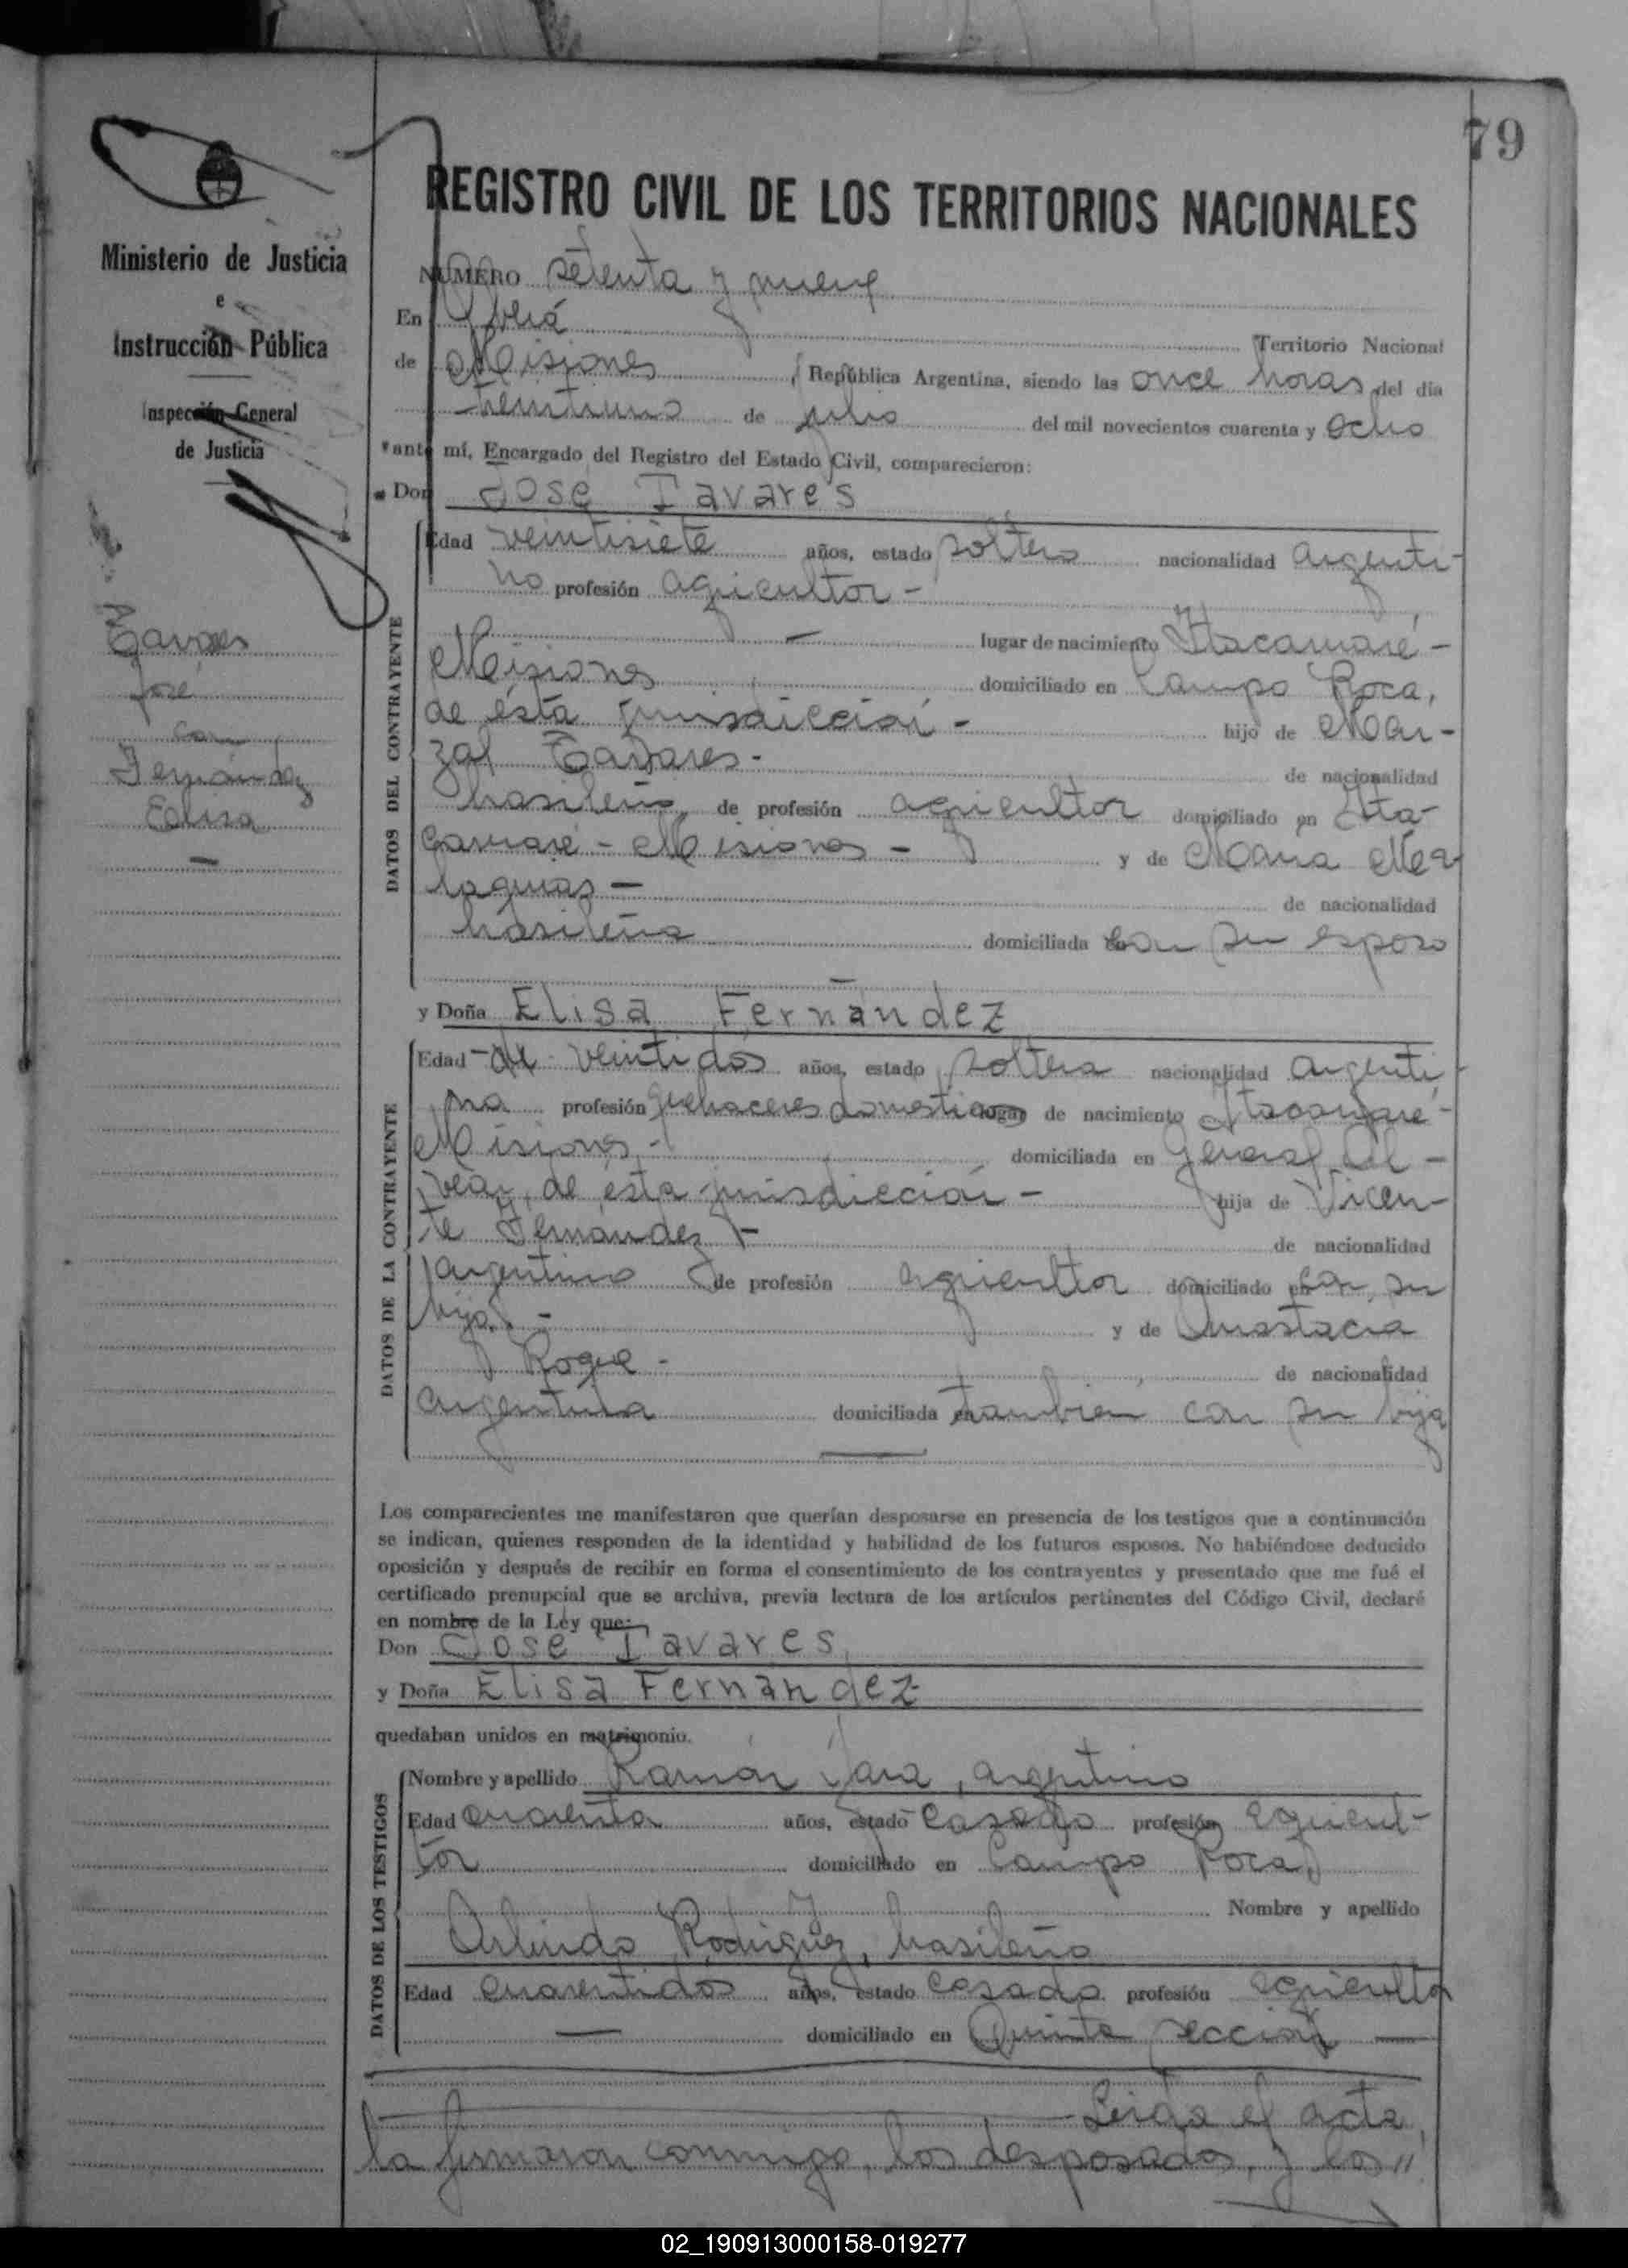 79
REGISTRO CIVIL DE LOS TERRITORIOS NACIONALES
Ministerio de Justicia
e
Instrucción Pública
Inspección General
de Justicia
Tavares
José
con
Fernández
Elisa
NÚMERO setenta y nueve
En
Territorio Nacional
de Misiones, República Argentina, siendo las once horas del día
treintiuno de julio del mil novecientos cuarenta y ocho
ante mí, Encargado del Registro del Estado Civil, comparecieron:
Don Jose Tavares
DATOS DEL CONTRAYENTE
Edad veintisiete años, estado soltero nacionalidad argenti-
no profesión agricultor -
lugar de nacimiento Itacaruaré -
Misiones domiciliado en Campo Roca,
de ésta jurisdicción - hijo de Mar-
zal Tavares - de nacionalidad
brasileño de profesión agricultor domiciliado en Ita-
caruaré - Misiones - y de Maria
de nacionalidad
brasileña domiciliada con su esposo
y Doña Elisa Fernández
DATOS DE LA CONTRAYENTE
Edad - de veintidós años, estado soltera nacionalidad argenti-
na profesión quehaceres domesticos lugar de nacimiento Itacaruaré -
Misiones - domiciliada en General Al-
vear, de ésta jurisdicción - hija de Vicen-
te Fernández - de nacionalidad
argentino de profesión agricultor domiciliado en con su
hija - y de Anastacia
Roque - de nacionalidad
argentina domiciliada también con su hija
Los comparecientes me manifestaron que querían desposarse en presencia de los testigos que a continuación
se indican, quienes responden de la identidad y habilidad de los futuros esposos. No habiéndose deducido
oposición y después de recibir en forma el consentimiento de los contrayentes y presentado que me fué el
certificado prenupcial que se archiva, previa lectura de los artículos pertinentes del Código Civil, declaré
en nombre de la Ley que:
Don Jose Tavares
y Doña Elisa Fernández
quedaban unidos en matrimonio.
DATOS DE LOS TESTIGOS
Nombre y apellido Ramón Jara, argentino
Edad cuarenta años, estado casado profesión agricul-
tor domiciliado en Campo Roca,
Nombre y apellido
Arlindo Rodriguez, brasileño
Edad cuarentidos años, estado casado profesión agricultor
domiciliado en Quinta sección
Leida el acta,
la firmaron conmigo, los desposados, y los //
02_190913000158-019277